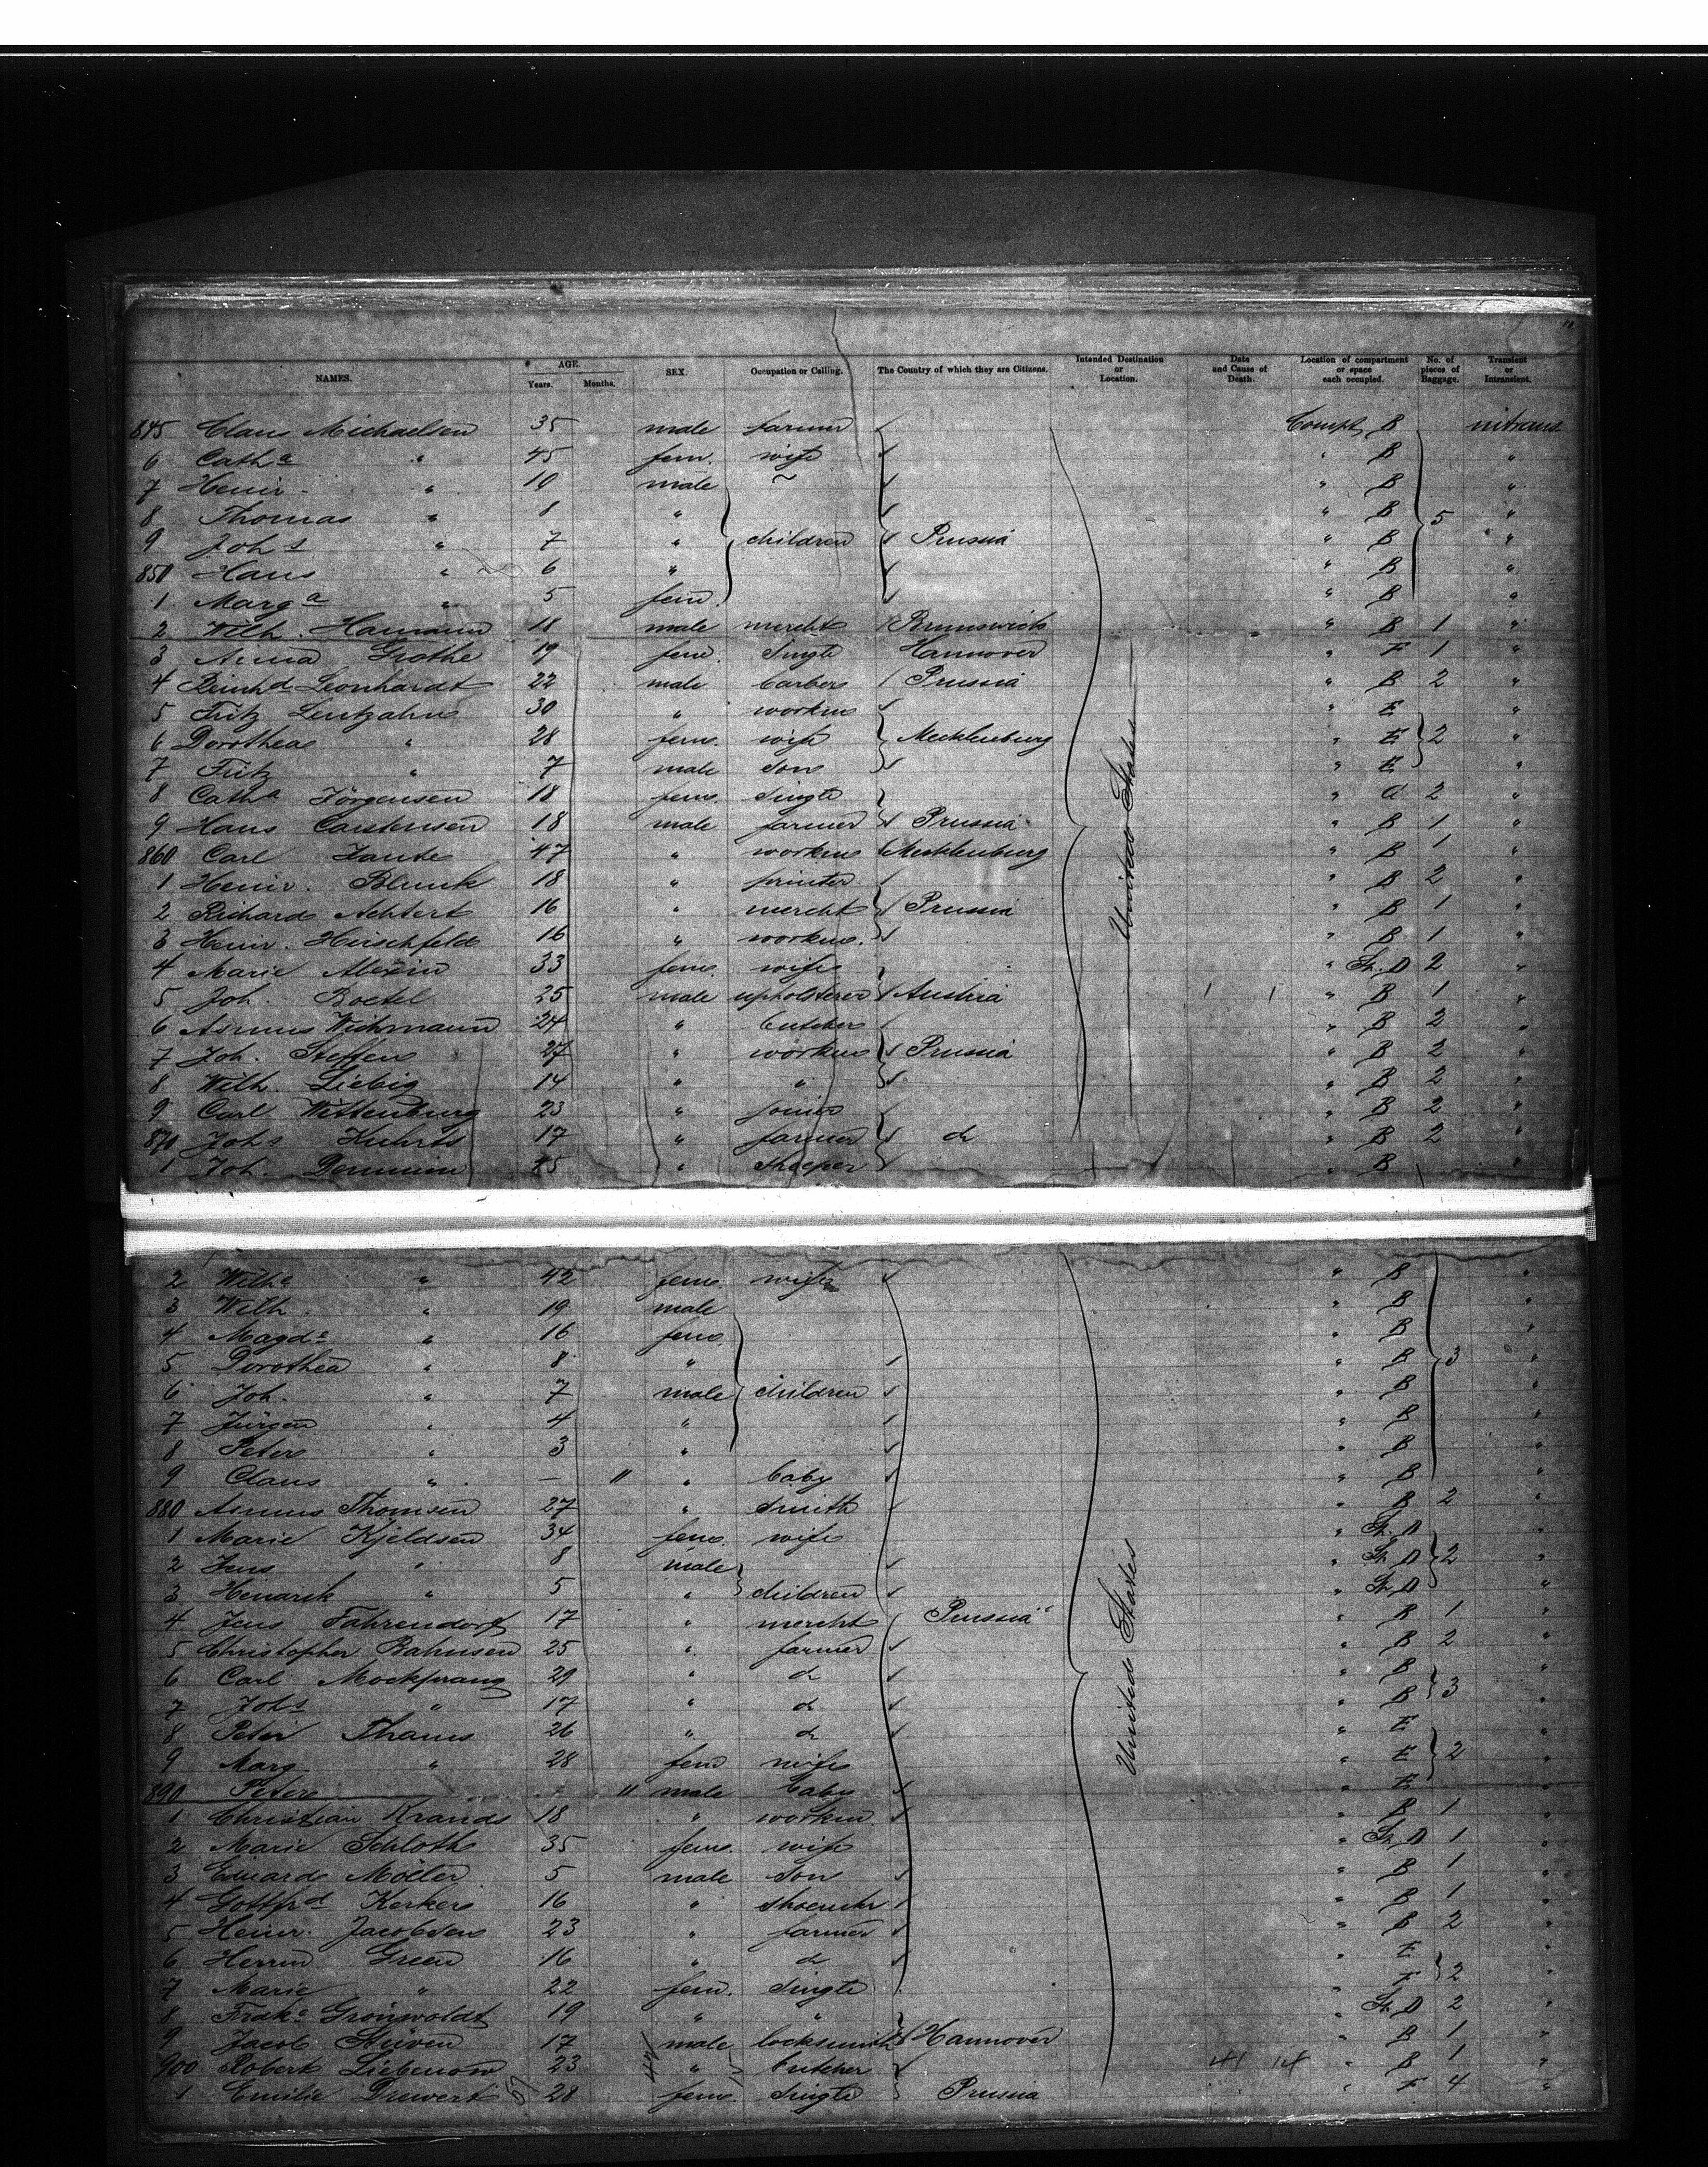 NAMES. AGE. Years. Months. SEX. Occupation or Calling. The Country of which they are Citizens. Intended Destination or Location. Date and Cause of Death. Location of compartment or space each occupied. No. of pieces of Baggage. Transient or Intransient.
845 Claus Michaelsen 35 male farmer Compt, B intrans
6 Cath a " 45 fem. wife " B "
7 Heinr. " 10 male ~ " B "
8 Thomas " 1 " " B 5 "
9 Joh s " 7 " children Prussia " B "
850 Hans " 6 " " B "
1 Marg a " 5 fem. " B "
2 Wilh. Hamann 18 male mercht Brunswick " B 1 "
3 Anna Grothe 19 fem. Single Hannover " F 1 "
4 Reinhd Leonhardt 22 male barber Prussia " B 2 "
5 Fritz Lentzahn 30 " workm " E "
6 Dorothea " 28 fem. wife Mecklenburg " E 2 "
7 Fritz " 7 male son " E "
8 Cath a Jörgensen 18 fem. Single " 2 "
9 Hans Carstensen 18 male farmer Prussia " B 1 "
860 Carl 47 " workm Mecklenburg " B 1 "
1 Heinr. Blunk 18 " printer " B 2 "
2 Richard Achtert 16 " mercht Prussia " B 1 "
3 Heinr. Hirschfeld 16 " workm. " B 1 "
4 Marie 33 fem. wife " St. D 2 "
5 Joh. Boetel 25 male upholsterer Austria " B 1 "
6 Asmus Wichmann 24 " butcher " B 2 "
7 Joh. Steffen 27 " workm Prussia " B 2 "
8 Wilh. Liebig 14 " " " B 2 "
9 Carl Wittenburg 23 " joiner " B 2 "
870 Joh s Kuhrts 17 " farmer do " B 2 "
1 Joh. 45 " " B "
United States
2 Wilh a " 42 fem wife " B "
3 Wilh. " 19 male " B "
4 Magd a " 16 fem. " B "
5 Dorothea " 8 " " B 3 "
6 Joh. " 7 male children " B "
7 Jürgen " 4 " " B "
8 Peter " 3 " " B "
9 Claus " — 11 " baby " B "
880 Asmus Thomsen 27 " Smith " B 2 "
1 Marie Kjeldsen 34 fem. wife " St. D "
2 Jens " 8 male " St. D 2 "
3 Henarik " 5 " children " St. D "
4 Jens Fahrendorf 17 " mercht Prussia " B 1 "
5 Christopher Bahnsen 25 " farmer " B 2 "
6 Carl Mockprang 29 " do " B "
7 Joh s " 17 " do " B 3 "
8 Peter Thams 26 " do " E "
9 Marg. " 28 fem wife " E 2 "
890 Peter " 11 male baby " E "
1 Christian Krands 18 " workm. " B 1 "
2 Marie Schloth 35 fem. wife " St. D 1 "
3 Eduard Möller 5 male son " B 1 "
4 Gottfrd Kerker 16 " shoemkr " B 1 "
5 Heinr. Jacobsen 23 " farmer " B 2 "
6 Herrm Green 16 " do " E "
7 Marie " 22 fem. Single " F 2 "
8 Frdke Grönwoldt 19 " " " St. D 2 "
9 Jacob Stüven 17 male locksmith Hannover " B 1 "
900 Robert Liebenow 23 " butcher " B 1 "
1 Emilie Drewert 28 fem. Single Prussia " F 4 "
United States